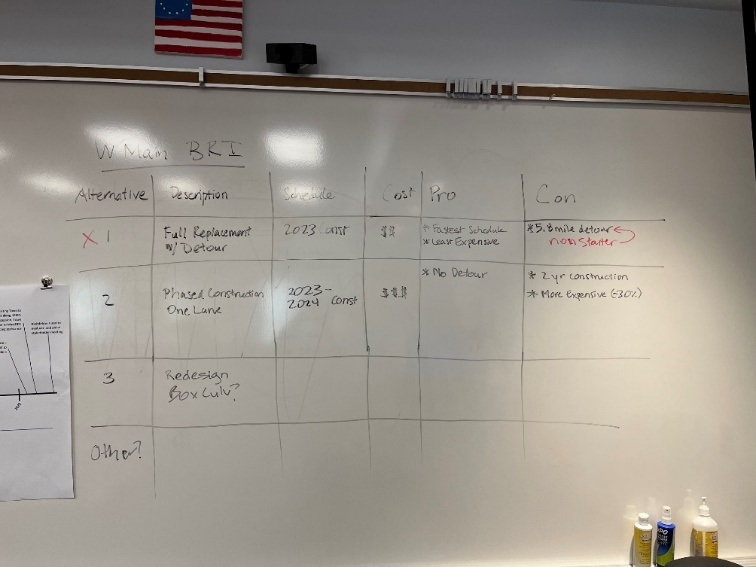 W Main BRI
Alternative Description Schedule Cost Pro Con
X 1 Full Replacement W/ Detour 2023 const $$ * Fastest Schedule * Least Expensive * 5.8 mile detour non starter
2 Phased Construction One Lane 2023-2024 Const $$$ * No Detour * 2 yr construction * More Expensive (~30%)
3 Redesign Box Culv?
Other?